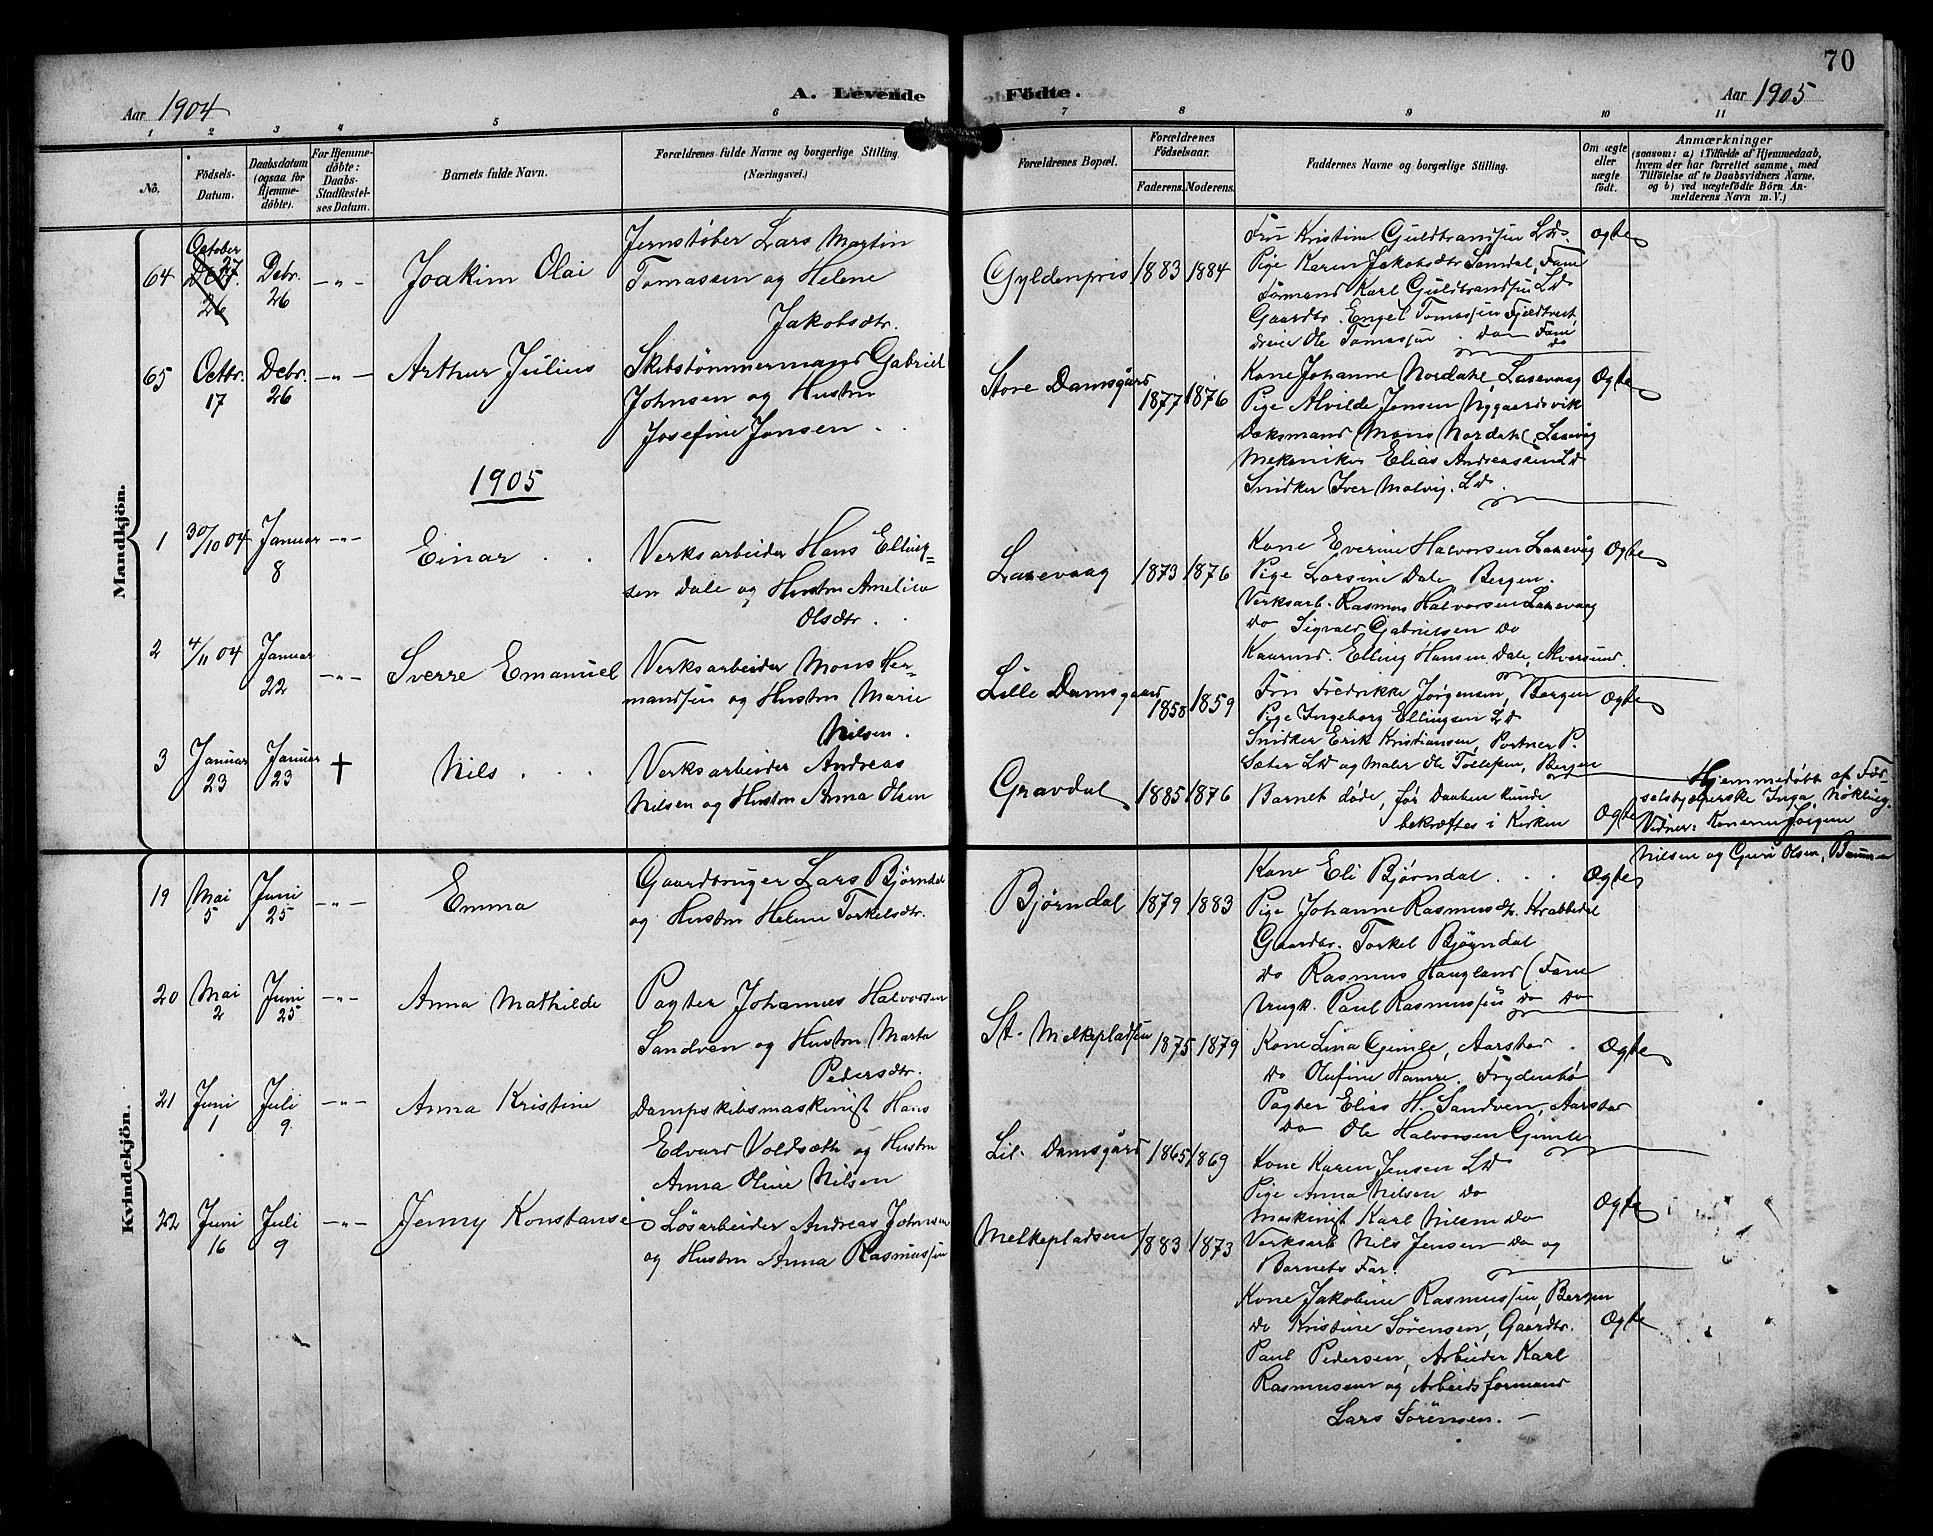 70
Aar 1904
A. Levende
Fødte.
Aar 1905
1 2 3 4 5 6 7 8 9 10 11
No.
Fødsels-
Datum.
Daabsdatum
(ogsaa for
Hjemme-
døbte).
For Hjemme-
døbte:
Daabs-
Stadfæstel-
ses Datum.
Barnets fulde Navn.
Forældrenes fulde Navne og borgerlige Stilling
(Næringsvei.)
Forældrenes Bopæl.
Forældrenes
Fødselsaar.
Faderens. Moderens.
Faddernes Navne og borgerlige Stilling.
Om ægte
eller
uægte
født.
Anmærkninger
(saasom: a) i Tilfælde af Hjemmedaab,
hvem der har forrettet samme, med
Tilføielse af to Daabsvidners Navne,
og b) ved uægtefødte Børn An-
melderens Navn m. V.)
Mandkjön.
64
October
27
Debr.
26
Debr.
26
-"-
Joakim Olai
Jernstøber Lars Martin
Tomassen og Helene
Jakobsdtr.
Gyldenpris
1883
1884
Fru Kristine Guldbrandsen Ld
Pige Karen Jakobsdtr Sandal, Fane
Formand Karl Guldbrandsen Ld
Gaardbr. Engel Tomassen Fjeldtvet,
Ole Tomassen do Fane
do
Ægte
65
Octbr.
17
Debr.
26
-"-
Arthur Julius
Skibstømmermand Gabriel
Johnsen og Hustru
Josefine Jansen
Store Damsgård
1877
1876
Kone Johanne Nordahl, Laxevaag
Pige Alvilde Jensen Nygaardsvik
Doksmand Mons Nordahl, Laxevåg
Mekaniker Elias Andreassen Ld
Snidker Iver Malvig. Ld.
Ægte
1905
1
30/10 04
Januar
8
-"-
Einar
Verksarbeider Hans Elling-
sen Dale og Hustru Amelia
Olsdtr.
Laxevaag
1873
1876
Kone Everine Halvorsen Laxevåg
Pige Larsine Dale Bergen.
Verksarb. Rasmus Halvorsen Laxevaag
do Sigvald Gabrielsen do
Kaarmd. Elling Hansen Dale, Alversund.
Ægte
2
4/11 04
Januar
22
-"-
Sverre Emanuel
Verksarbeider Mons Her-
mandsen og Hustru Marie
Nilsen.
Lille Damsgaard
1858
1859
Fru Fredrikke Jørgensen, Bergen
Pige Ingeborg Ellingsen Ld
Snidker Erik Kristiansen, Portner P.
Sæter Ld og Maler Ole Tollefsen, Bergen
Ægte
3
Januar
23
Januar
23
†
Nils
Verksarbeider Andreas
Nilsen og Hustru Anna Olsen
Gravdal
1885
1876
Barnet døde, før Daaben kunde
bekræftes i Kirken
Ægte
Hjemmedøbt af Fød-
selshjælperske Inga Nøkling.
Vidner: Konerne Jørgine
Nilsen og Guri Olsen,
Kvindekjön.
19
Mai
5
Juni
25
-"-
Emma
Gaardbruger Lars Bjørndal
og Hustru Helene Torkelsdtr.
Bjørndal
1879
1883
Kone Eli Bjørndal
Pige Johanne Rasmusdtr. Krabbedal
Gaardbr. Torkel Bjørndal
do Rasmus Haugland (Fane
Ungk. Paul Rasmussen do do
Ægte
20
Mai
2
Juni
25
-"-
Anna Mathilde
Pagter Johannes Halvorsen
Sandven og Hustru Marta
Pedersdtr.
St. Melkepladsen
1875
1879
Kone Lina Gimle, Aarstad
do Olufine Hamre. Frydenbø
Pagter Elias H. Sandven, Aarstad
do Ole Halvorsen Gimle
Ægte
21
Juni
1
Juli
9
-"-
Anna Kristine
Dampskibsmaskinist Hans
Edvard Voldsæth og Hustru
Anna Oline Nilsen
Lil. Damsgård
1865
1869
Kone Karen Jensen Ld
Pige Anna Nilsen do
Maskinist Karl Nilsen do
Verksarb Nils Jensen do og
Barnets Far.
Ægte
22
Juni
16
Juli
9
-"-
Jenny Konstanse
Løsarbeider Andreas Johnsen
og Hustru Anna Rasmussen
Melkepladsen
1883
1873
Kone Jakobine Rasmussen, Bergen
do Kristine Sørensen, Gaardbr.
Paul Pedersen, Arbeider Karl
Rasmussen og Arbeidsformand
Lars Sørensen.
Ægte